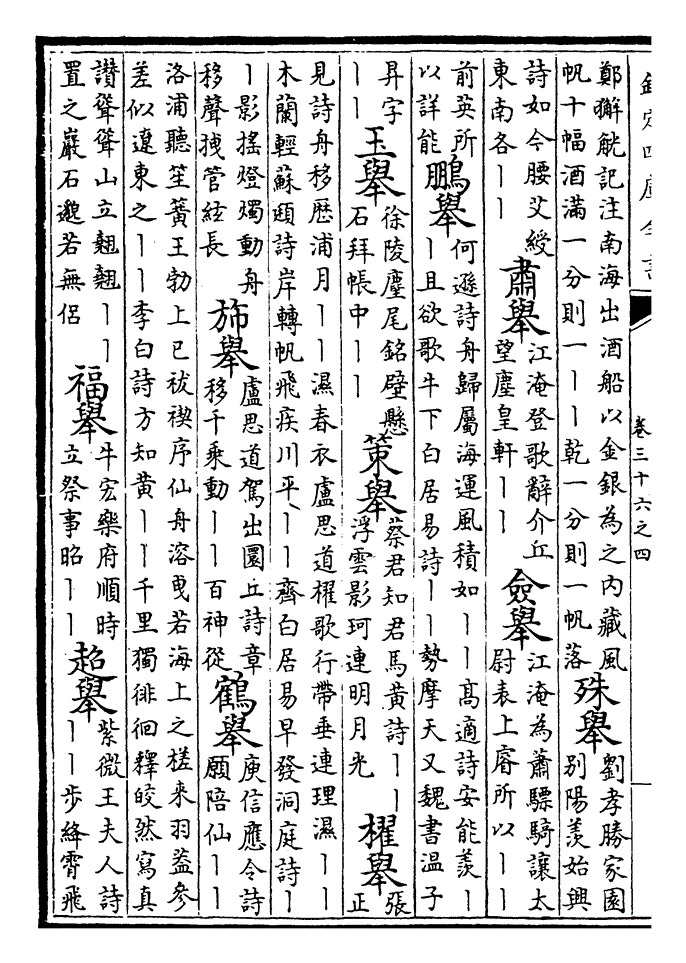 欽定四庫全書
卷三十六之四
鄭獬觥記注南海出酒船以金銀為之内藏風
帆十幅酒滿一分則一丨丨乾一分則一帆落
殊舉
劉孝勝家園
別陽羨始興
詩如今腰艾綬
東南各丨丨
肅舉
江淹登歌辭介丘
望塵皇軒丨丨
僉舉
江淹為蕭驃騎讓太
尉表上睿所以丨丨
前英所
以詳能
鵬舉
何遜詩舟歸屬海運風積如丨丨高適詩安能羨丨
丨且欲歌牛下白居易詩丨丨勢摩天又魏書温子
昇字
丨丨
玉舉
徐陵麈尾銘壁懸
石拜帳中丨丨
策舉
蔡君知君馬黄詩丨丨
浮雲影珂連明月光
櫂舉
張
正
見詩舟移歴浦月丨丨濕春衣盧思道櫂歌行帶垂連理濕丨丨
木蘭輕蘇頲詩岸轉帆飛疾川平丨丨齊白居易早發洞庭詩丨
丨影搖燈燭動舟
移聲拽管絃長
斾舉
盧思道駕出圜丘詩章
移千乘動丨丨百神從
鶴舉
庾信應令詩
願陪仙丨丨
洛浦聽笙簧王勃上巳祓禊序仙舟溶曳若海上之槎来羽葢參
差似遼東之丨丨李白詩方知黄丨丨千里獨徘徊釋皎然寫真
讚聳聳山立翹翹丨丨
置之巖石邈若無侶
福舉
牛宏樂府順時
立祭事昭丨丨
超舉
紫微王夫人詩
丨丨步絳霄飛